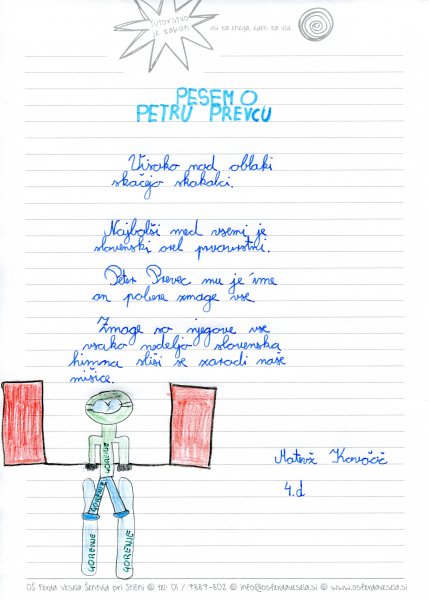 Tutorstvo
je zakon
vsi za enega, eden za vse
PESEM O
PETRU PREVCU
Visoko nad oblaki
skačejo skakalci.
Najboljši med vsemi je
slovenski orel prvovrstni.
Peter Prevc mu je ime
on pobere zmage vse
Zmage so njegove vse
vsako nedeljo slovenska
himna sliši se zaradi naše
mišice.
GORENJE
GORENJE
GORENJE
GORENJE
Matevž Kovačič
4.d
OŠ Ferda Vesela Šentvid pri Stični @ tel: 01 / 7887-802 @ info@osferdavesela.si @ www.osferdavesela.si